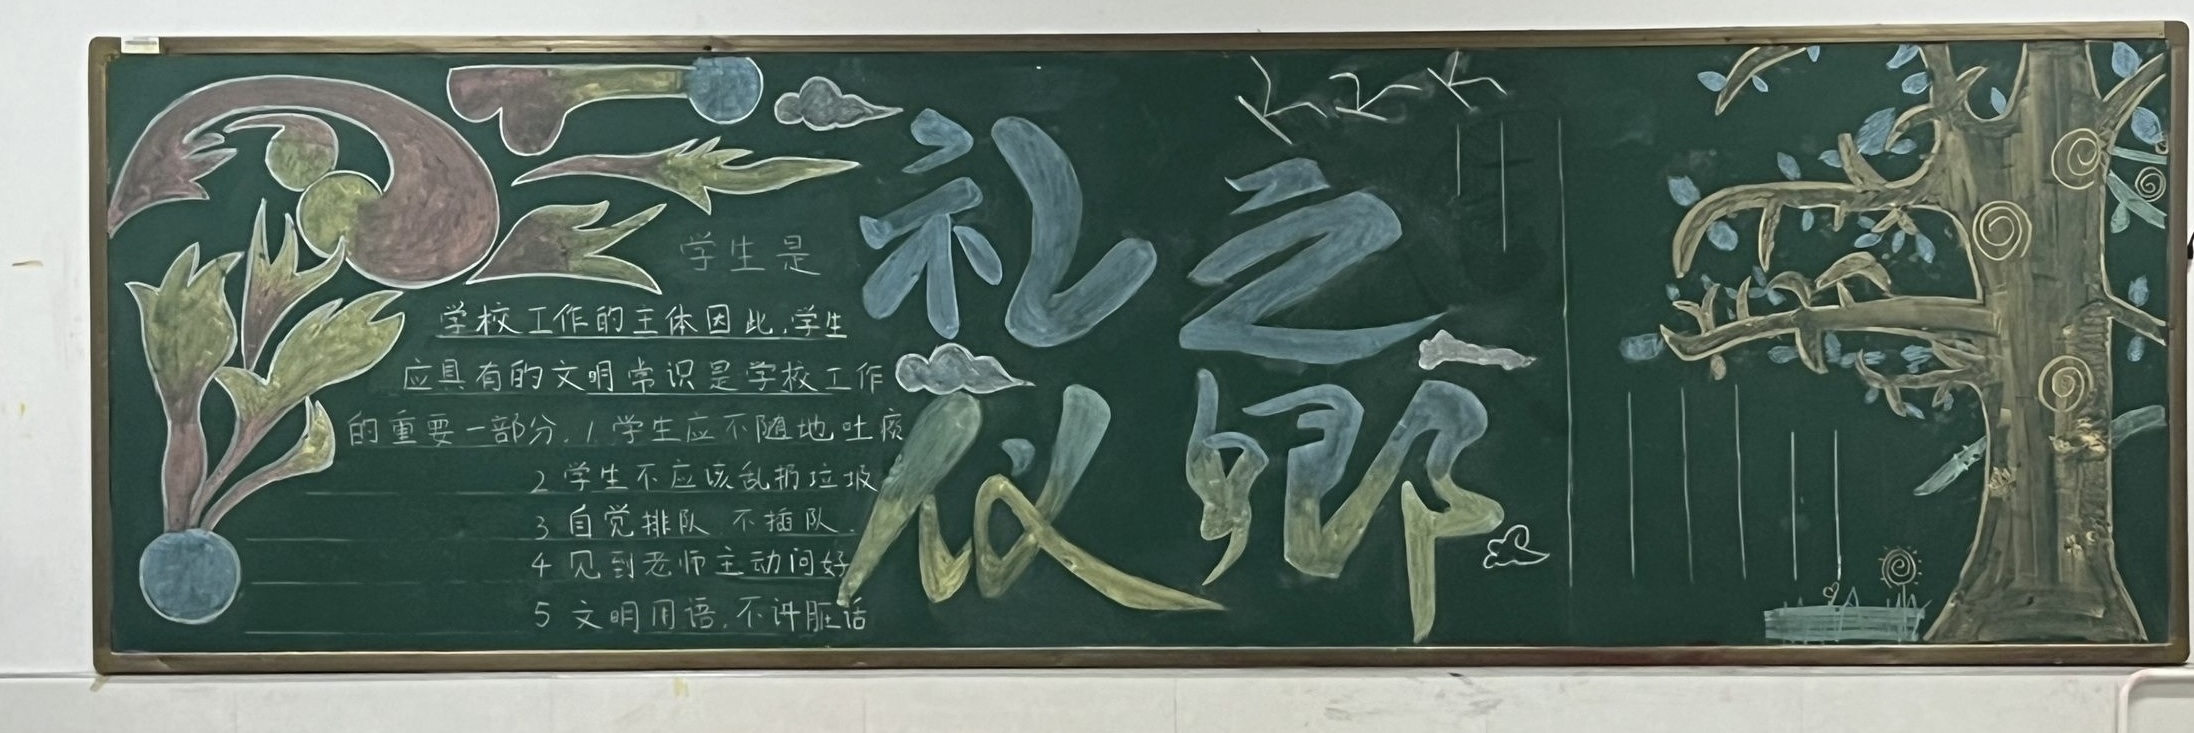 礼仪之乡
学生是
学校工作的主体因此,学生
应具有的文明常识是学校工作
的重要一部分.1学生应不随地吐痰
2学生不应该乱扔垃圾
3自觉排队 不插队.
4见到老师主动问好
5文明用语.不讲脏话